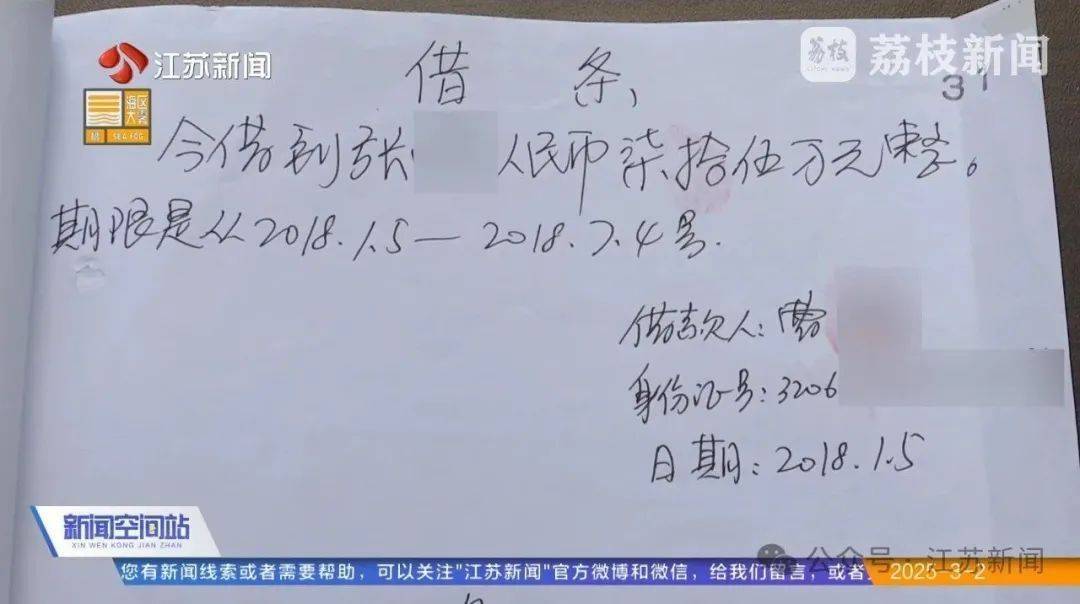 江苏新闻
荔枝
LITCHI NEWS
荔枝新闻
31
SEA FOG
借 条
今借到张 人民币柒拾伍万元整。
期限是从2018.1.5—2018.7.4号.
借款人:曹
身份证号:3206
日期:2018.1.5
新闻空间站
XIN WEN KONG JIAN ZHAN
公众号·江苏新闻
您有新闻线索或者需要帮助,可以关注"江苏新闻"官方微博和微信,给我们留言,或者
2025-3-2